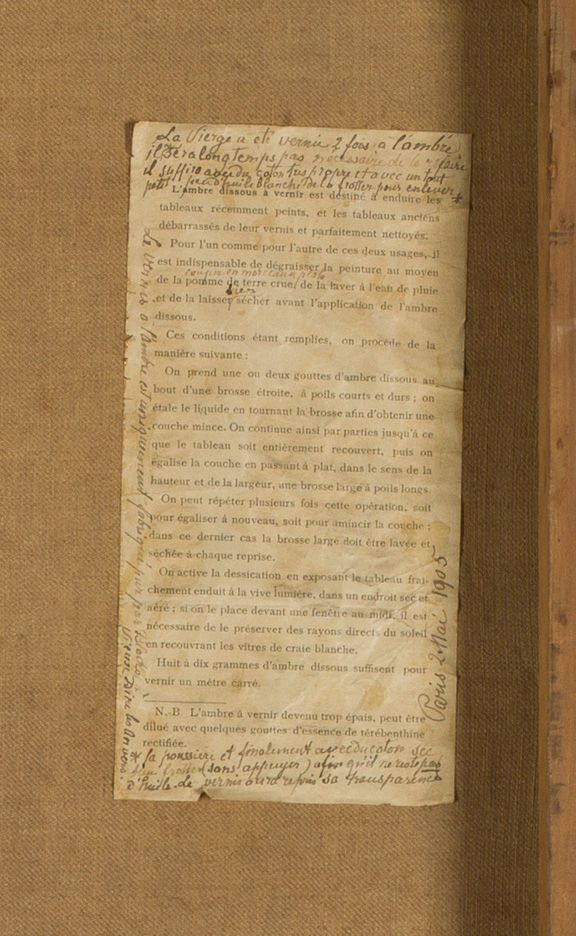 La Vierge a été vernie 2 fois à l'ambre
il sera longtemps pas nécessaire de le refaire
il suffira avec du coton tres propre et avec un tout
petit peu d'huile blanche de la frotter pour enlever *
L'ambre dissous à vernir est destiné à enduire les
tableaux récemment peints, et les tableaux anciens
débarrassés de leur vernis et parfaitement nettoyés.
Pour l'un comme pour l'autre de ces deux usages, il
est indispensable de dégraisser la peinture au moyen
coupée en morceaux plats
de la pomme de terre crue, de la laver à l'eau de pluie
bien
et de la laisser sécher avant l'application de l'ambre
dissous.
Ces conditions étant remplies, on procède de la
manière suivante :
On prend une ou deux gouttes d'ambre dissous au
bout d'une brosse étroite, à poils courts et durs ; on
étale le liquide en tournant la brosse afin d'obtenir une
couche mince. On continue ainsi par parties jusqu'à ce
que le tableau soit entièrement recouvert, puis on
égalise la couche en passant à plat, dans le sens de la
hauteur et de la largeur, une brosse large à poils longs
On peut répéter plusieurs fois cette opération, soit
pour égaliser à nouveau, soit pour amincir la couche ;
dans ce dernier cas la brosse large doit être lavée et
séchée à chaque reprise.
On active la dessication en exposant le tableau fraî-
chement enduit à la vive lumière, dans un endroit sec et
aéré ; si on le place devant une fenêtre au midi, il est
nécessaire de le préserver des rayons directs du soleil
en recouvrant les vitres de craie blanche.
Huit à dix grammes d'ambre dissous suffisent pour
vernir un mètre carré.
N.-B L'ambre à vernir devenu trop épais, peut être
dilué avec quelques gouttes d'essence de térébenthine
rectifiée.
* la poussière et finalement avec du coton sec
frotter (sans appuyer) afin qu'il ne reste pas
d'huile le vernis aura repris sa transparence
Le vernis à l'ambre est uniquement fabriqué par
Paris 2 Mai 1905